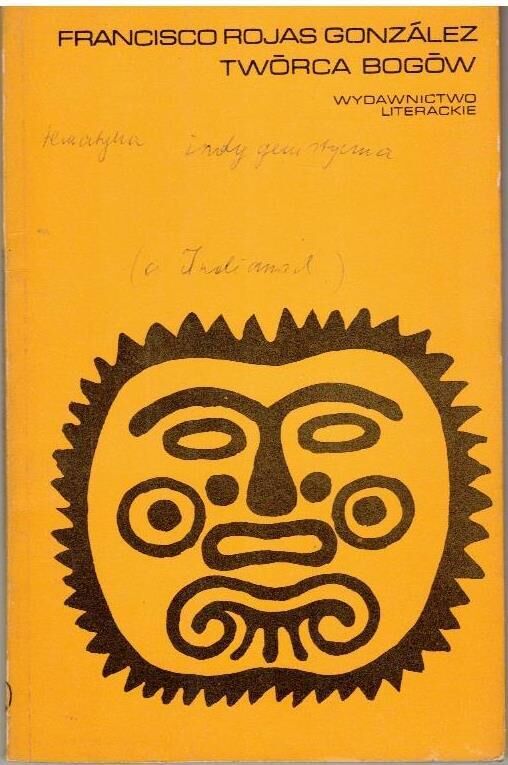 FRANCISCO ROJAS GONZÁLEZ
TWŌRCA BOGŌW
WYDAWNICTWO
LITERACKIE
tematyka indygenistyczna
(o Indianach)